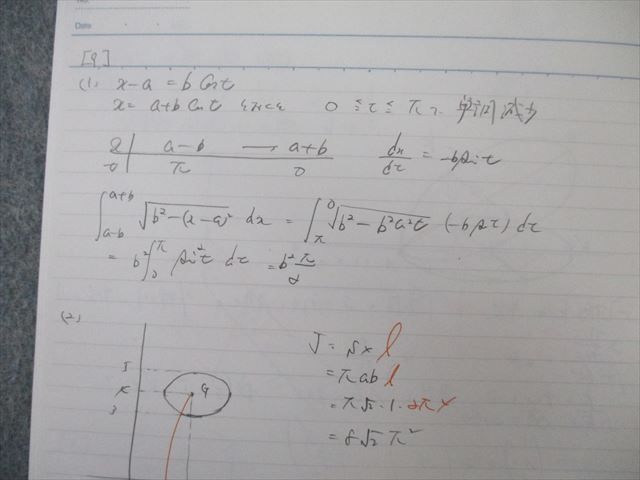 Date
[9]
(1) x-a = b cos t
x = a+b cos t 0 ≦ t ≦ π 単調減少
x | a-b → a+b dx/dt = -b sin t
t | π 0
∫_{a-b}^{a+b} √(b²-(x-a)²) dx = ∫_π^0 √(b²-b²cos²t) (-b sin t) dt
= b² ∫_0^π sin²t dt = b² π/2
(2)
V = S × l
= πab l
= π√2・1・2π×
= 8√2 π²
5
4
3
G